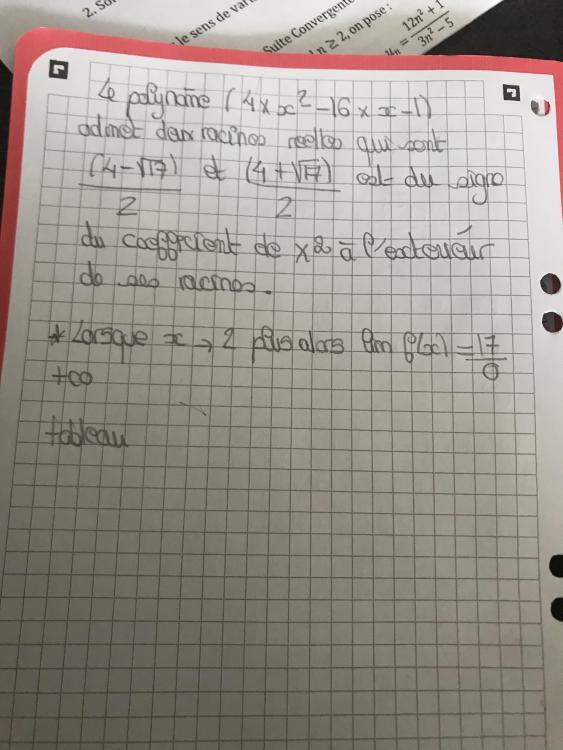 2. So
le sens de var
Suite Convergente
n ≥ 2, on pose :
= 12n² + 1 / 3n² − 5
Le polynôme (4 x x² - 16 x x - 1)
admet deux racines reelles qui sont
(4-√17)/2 et (4+√17)/2 est du signe
du coefficient de x2 à l'exterieur
de ses racines.
* Lorsque x → 2 plus alors lim f(x) = 17/0
+∞
tableau